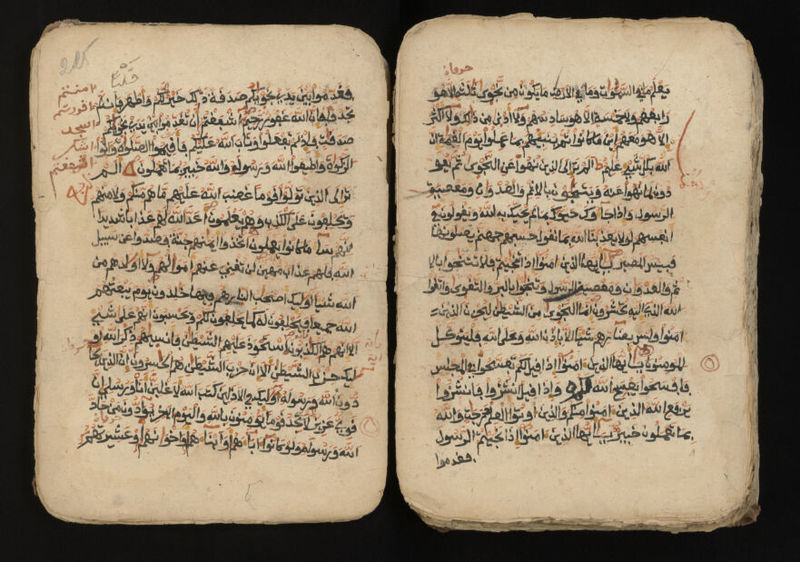 يعلم ما في السموت وما في الارض ما يكون من نجوى ثلثة الا هو
رابعهم ولا خمسة الا هو سادسهم ولا ادنى من ذلك ولا اكثر
الا هو معهم اين ما كانوا ثم ينبيهم بما عملوا يوم القيمة ان
الله بكل شيء عليم الم تر الى الذين نهوا عن النجوى ثم يعو
دون لما نهوا عنه ويتنجون بالاثم والعدون ومعصيت
الرسول واذا جاءوك حيوك بما لم يحيك به الله ويقولون في
انفسهم لولا يعذبنا الله بما نقول حسبهم جهنم يصلونها
فبيس المصير يايها الذين امنوا اذا تنجيتم فلا تتنجوا بالا
ثم والعدون ومعصيت الرسول وتنجوا بالبر والتقوى واتقوا
الله الذي اليه تحشرون انما النجوى من الشيطن ليحزن الذين
امنوا وليس بضارهم شيئا الا باذن الله وعلى الله فليتوكل
المومنون يايها الذين امنوا اذا قيل لكم تفسحوا في المجلس
فافسحوا يفسح الله لكم واذا قيل انشزوا فانشزوا
يرفع الله الذين امنوا منكم والذين اوتوا العلم درجت والله
بما تعملون خبير يايها الذين امنوا اذا نجيتم الرسول
فقدموا
فقدموا بين يدي نجويكم صدقة ذلك خير لكم واطهر فان لم
تجدوا فان الله غفور رحيم اشفقتم ان تقدموا بين يدي نجويكم
صدقت فاذ لم تفعلوا وتاب الله عليكم فاقيموا الصلوة واتوا
الزكوة واطيعوا الله ورسوله والله خبير بما تعملون الم
تر الى الذين تولوا قوما غضب الله عليهم ما هم منكم ولا منهم
ويحلفون على الكذب وهم يعلمون اعد الله لهم عذابا شديدا
انهم ساء ما كانوا يعملون اتخذوا ايمنهم جنة فصدوا عن سبيل
الله فلهم عذاب مهين لن تغني عنهم امولهم ولا اولدهم من
الله شيئا اوليك اصحب النار هم فيها خلدون يوم يبعثهم
الله جميعا فيحلفون له كما يحلفون لكم ويحسبون انهم على شيء
الا انهم هم الكذبون استحوذ عليهم الشيطن فانسيهم ذكر الله او
ليك حزب الشيطن الا ان حزب الشيطن هم الخسرون ان الذين يحا
دون الله ورسوله اوليك في الاذلين كتب الله لاغلبن انا ورسلي ان الله
قوي عزيز لا تجد قوما يومنون بالله واليوم الاخر يوادون من حاد
الله ورسوله ولو كانوا اباءهم او ابناءهم او اخونهم او عشيرتهم